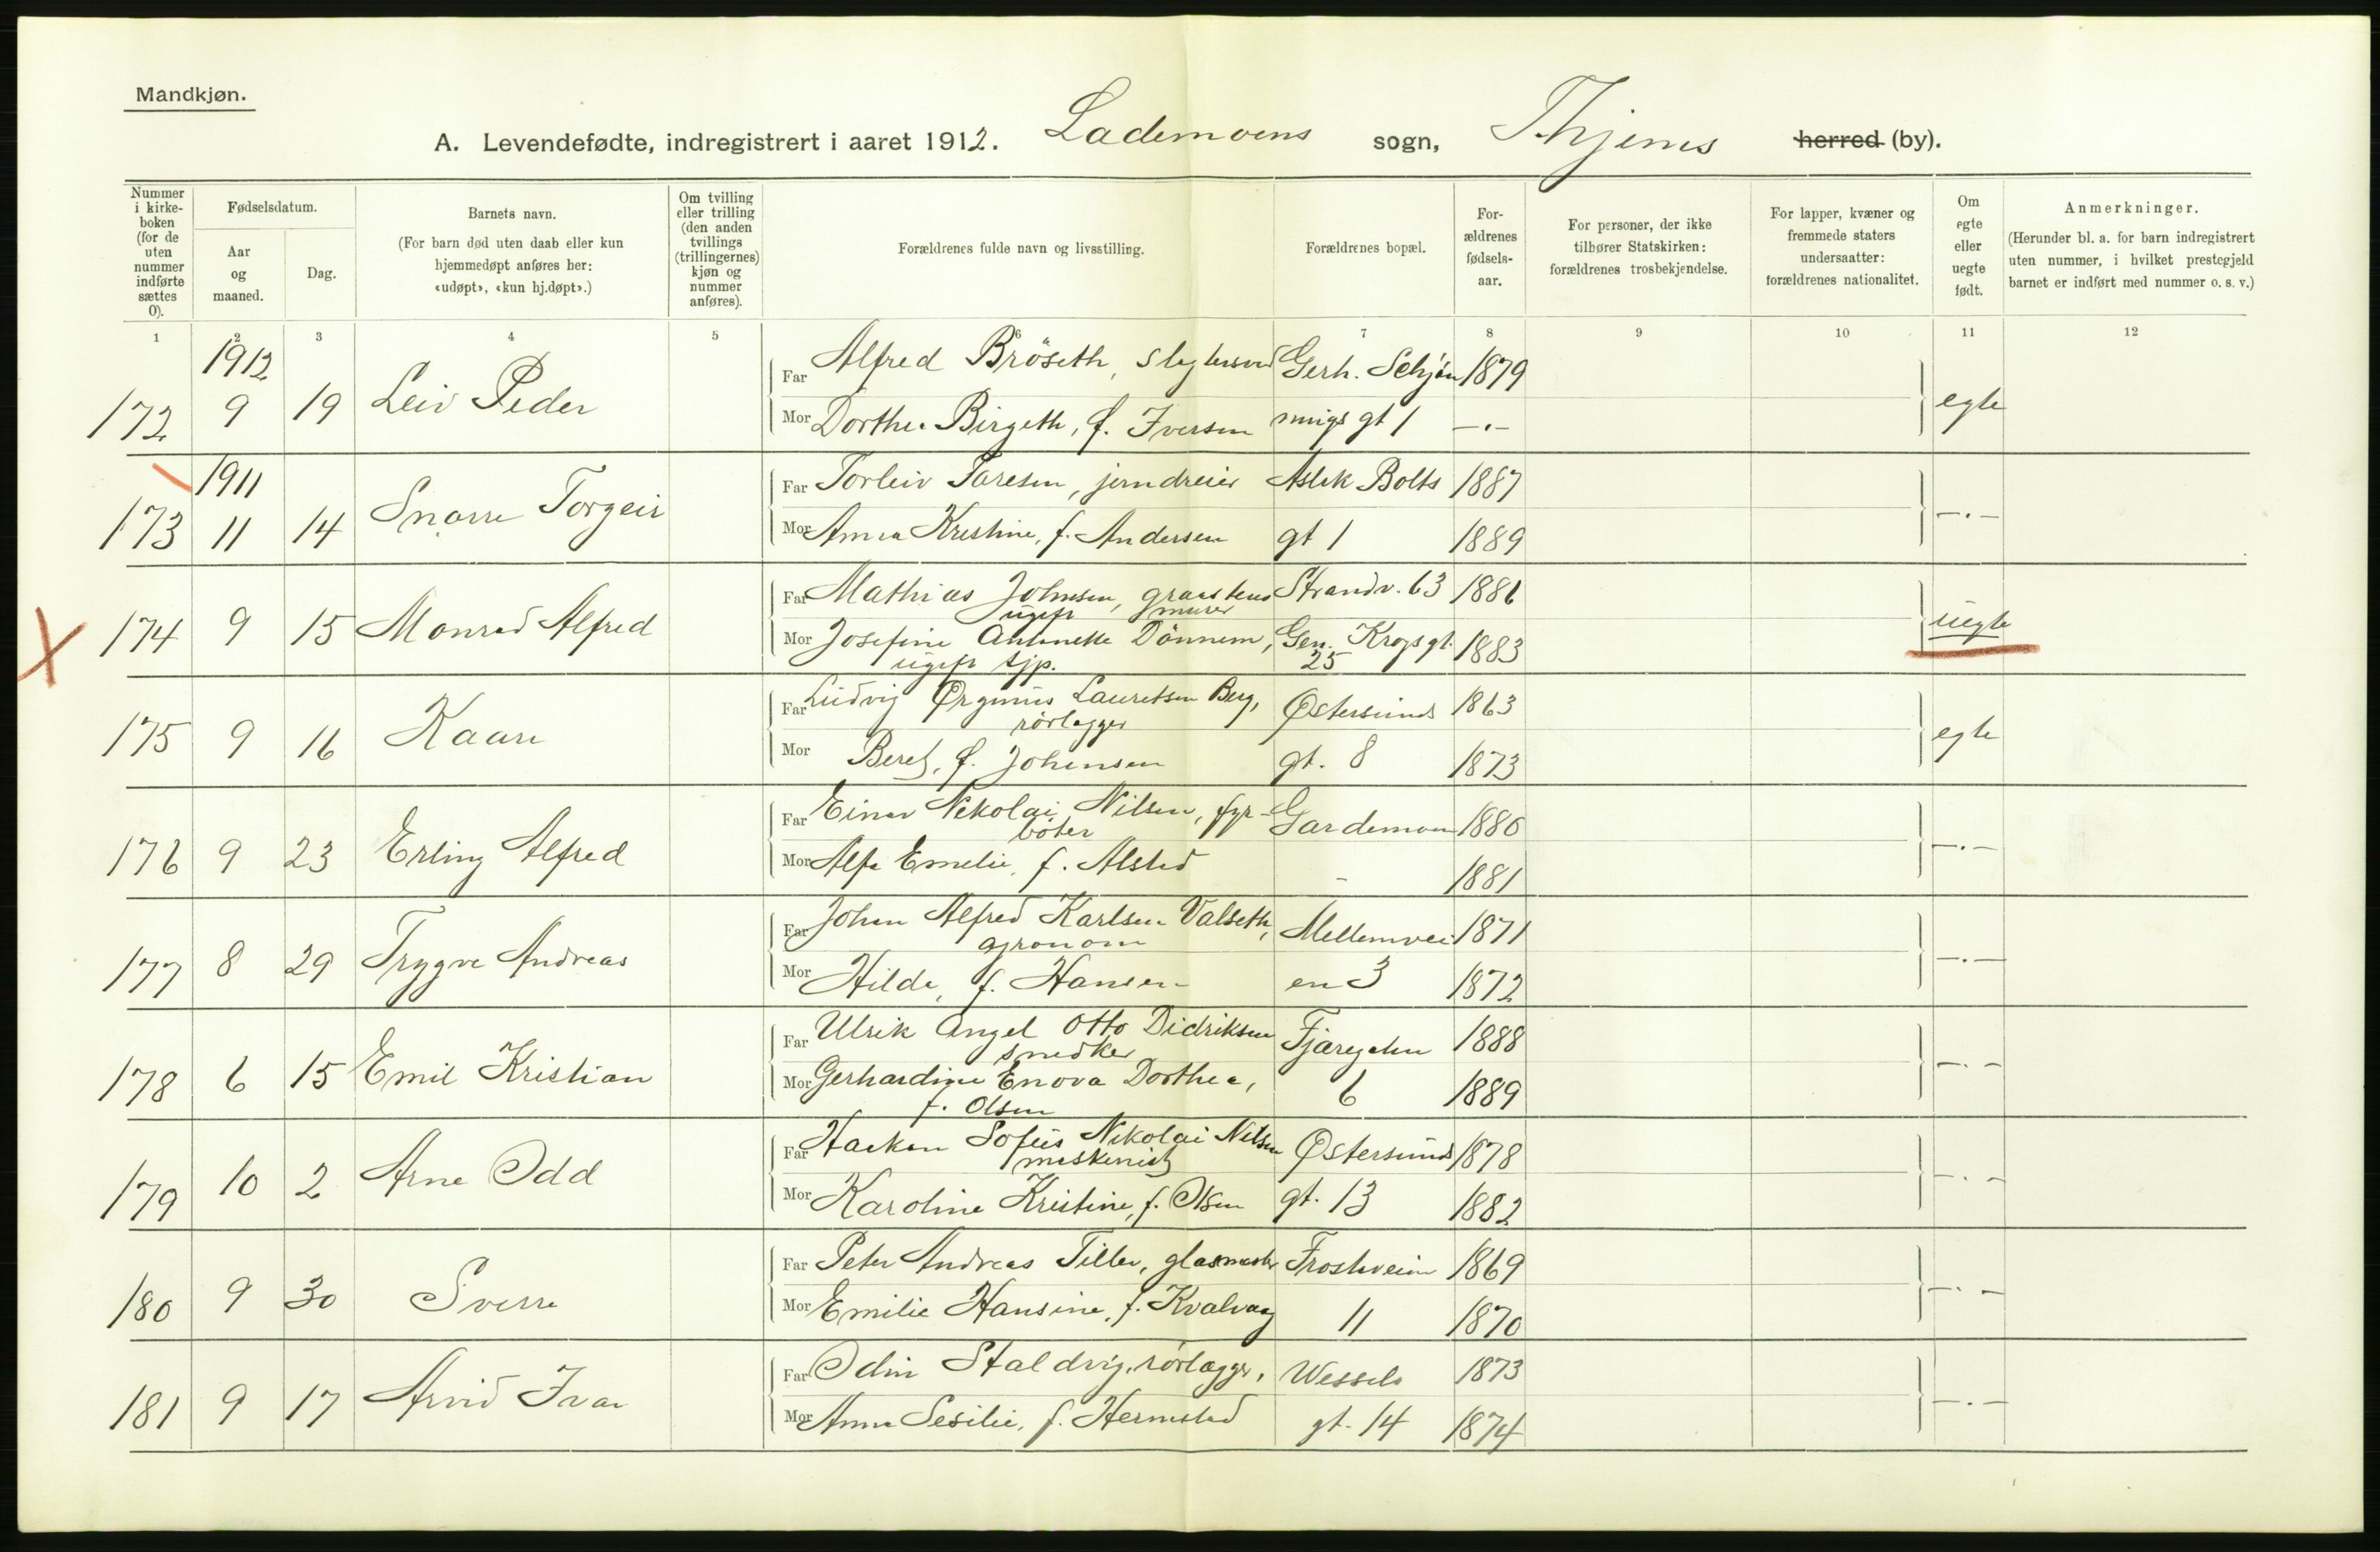 Mandkjøn.
A. Levendefødte, indregistrert i aaret 1912. Lademoens sogn, Thjems herred (by).
Nummer i kirke-boken (for de uten nummer indførte sættes 0).
Fødselsdatum.
Aar og maaned.
Dag.
Barnets navn.
(For barn død uten daab eller kun hjemmedøpt anføres her: «udøpt», «kun hj.døpt».)
Om tvilling eller trilling (den anden tvillings (trillingernes) kjøn og nummer anføres).
Forældrenes fulde navn og livsstilling.
Forældrenes bopæl.
For-ældrenes fødsels-aar.
For personer, der ikke tilhører Statskirken: forældrenes trosbekjendelse.
For lapper, kvæner og fremmede staters undersaatter: forældrenes nationalitet.
Om egte eller uegte født.
Anmerkninger.
(Herunder bl. a. for barn indregistrert uten nummer, i hvilket prestegjeld barnet er indført med nummer o. s. v.)
1 2 3 4 5 6 7 8 9 10 11 12
1912
Far Alfred Brøseth, Gerh. Schjøn 1879
172 9 19 Leiv Peder egte
Mor Dorthea Birgeth, f. Iversen nings gt 1 —"—
1911
Far Torleiv Taresen, jerndreier Aslak Bolts 1887
173 11 14 Snorre Torgeir —"—
Mor Anna Kristine, f. Andersen gt 1 1889
Far Mathias Johnsen, graastens Strandv. 63 1886
ugift murer
174 9 15 Monrad Alfred uegte
Mor Josefine Antonette Dönnem, Gen. Krogs gt. 1883
ugift tjp. 25
Far Ludvig Ørgenius Lauretsen Berg, Østersunds 1863
rörlegger
175 9 16 Kaare egte
Mor Beret, f. Johensen gt. 8 1873
Far Einar Nikolai Nilsen, fyr- Gardemoen 1880
böter
176 9 23 Erling Alfred —"—
Mor Alfa Emelie, f. Alstad - 1881
Far Johan Alfred Karlsen Valseth, Mellemvei 1871
agronom
177 8 29 Trygve Andreas —"—
Mor Hilda, f. Hansen en 3 1872
Far Ulrik Angel Otto Didriksen Fjæregaten 1888
snedker
178 6 15 Emil Kristian —"—
Mor Gerhardine Enova Dorthea, 6 1889
f. Olsen
Far Haakon Sofus Nikolai Nilsen Østersunds 1878
maskinist
179 10 2 Arne Odd —"—
Mor Karoline Kristine, f. Olsen gt. 13 1882
Far Peter Andreas Tiller, glasmester Frostaveien 1869
180 9 30 Sverre —"—
Mor Emilie Hansine, f. Kvalvaag 11 1870
Far Odin Staldvig, rörlægger, Wessels 1873
181 9 17 Arvid Ivar —"—
Mor Anna Sesilie, f. Hermstad gt. 14 1874